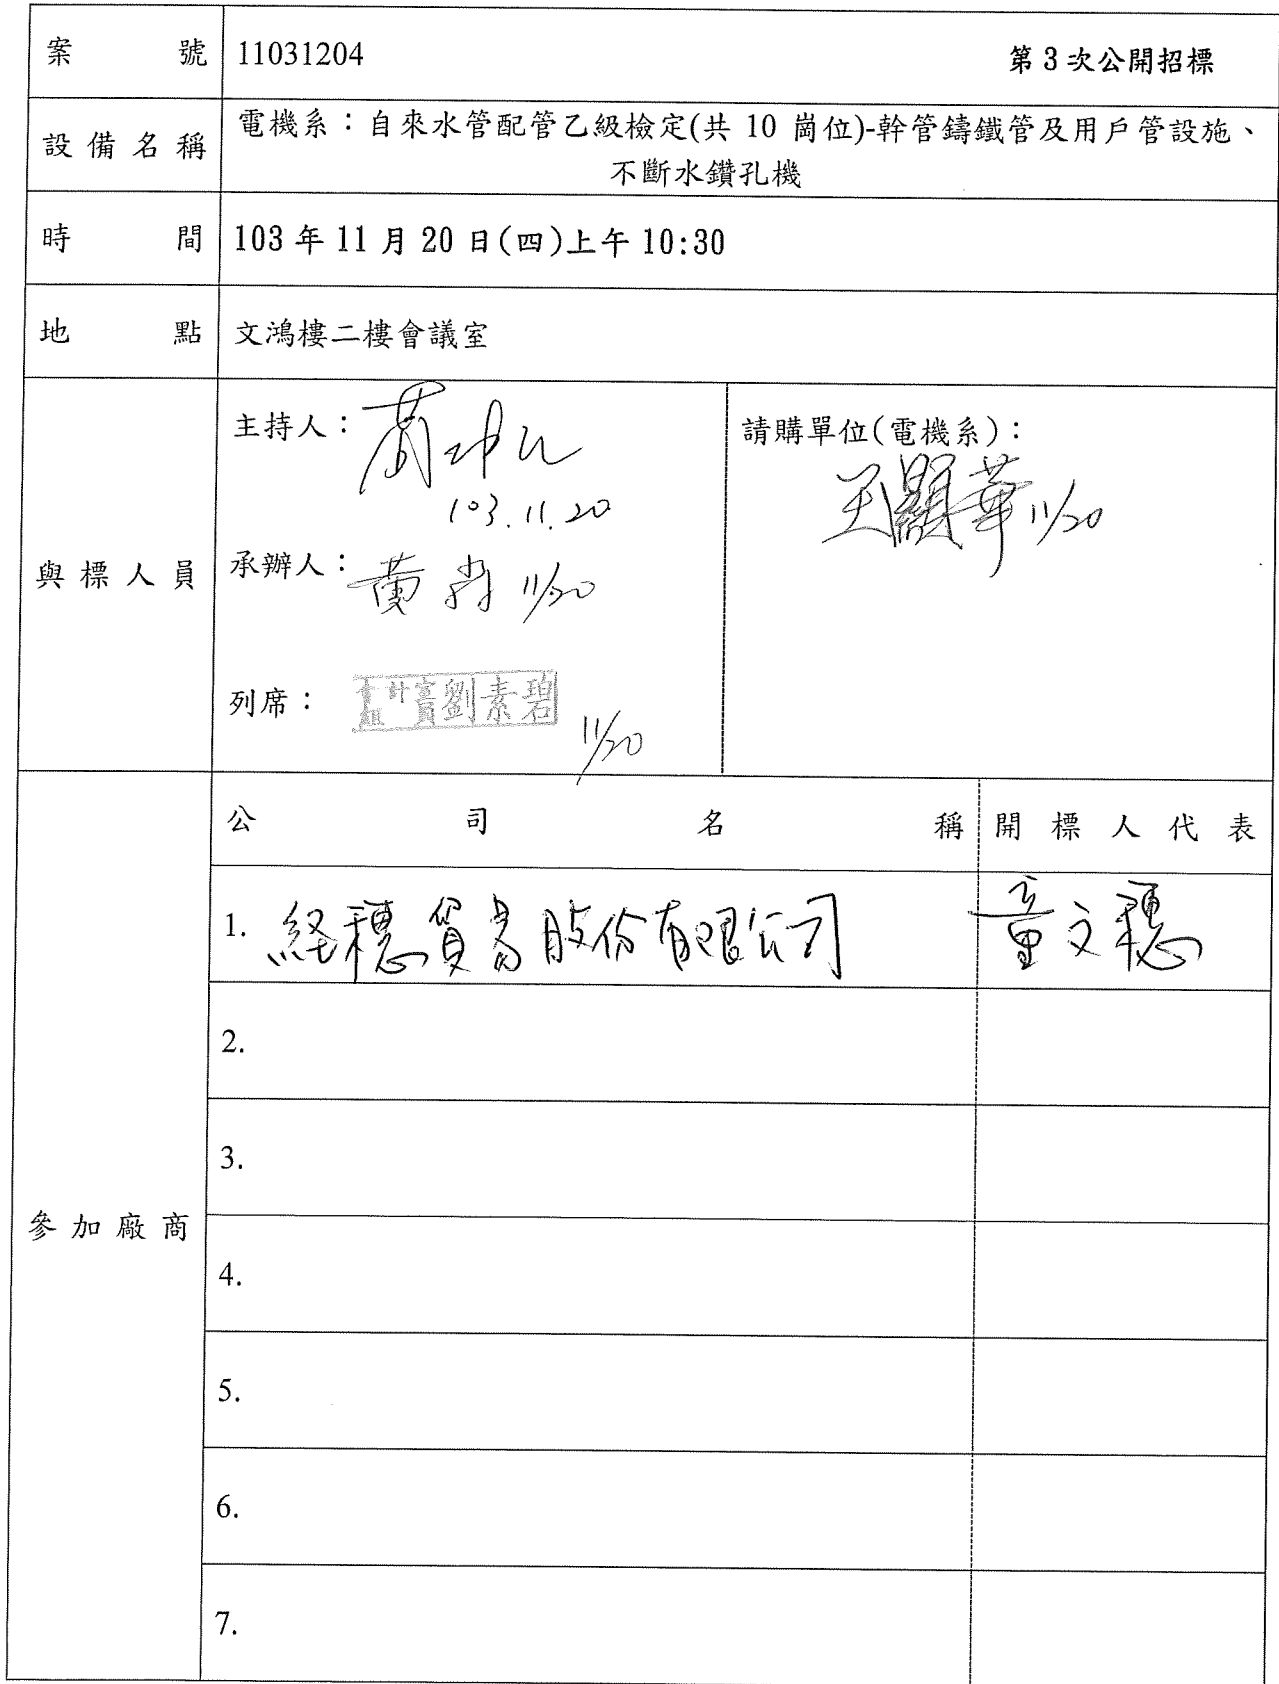 案號 11031204 第3次公開招標
設備名稱 電機系：自來水管配管乙級檢定(共 10 崗位)-幹管鑄鐵管及用戶管設施、
不斷水鑽孔機
時間 103 年 11 月 20 日(四)上午 10:30
地點 文鴻樓二樓會議室
與標人員
主持人：
103.11.20
承辦人：黃 11/20
列席：劉素碧 11/20
請購單位(電機系)：
王顯華 11/20
參加廠商
公司名稱 開標人代表
1. 経穗貿易股份有限公司 童文穗
2.
3.
4.
5.
6.
7.